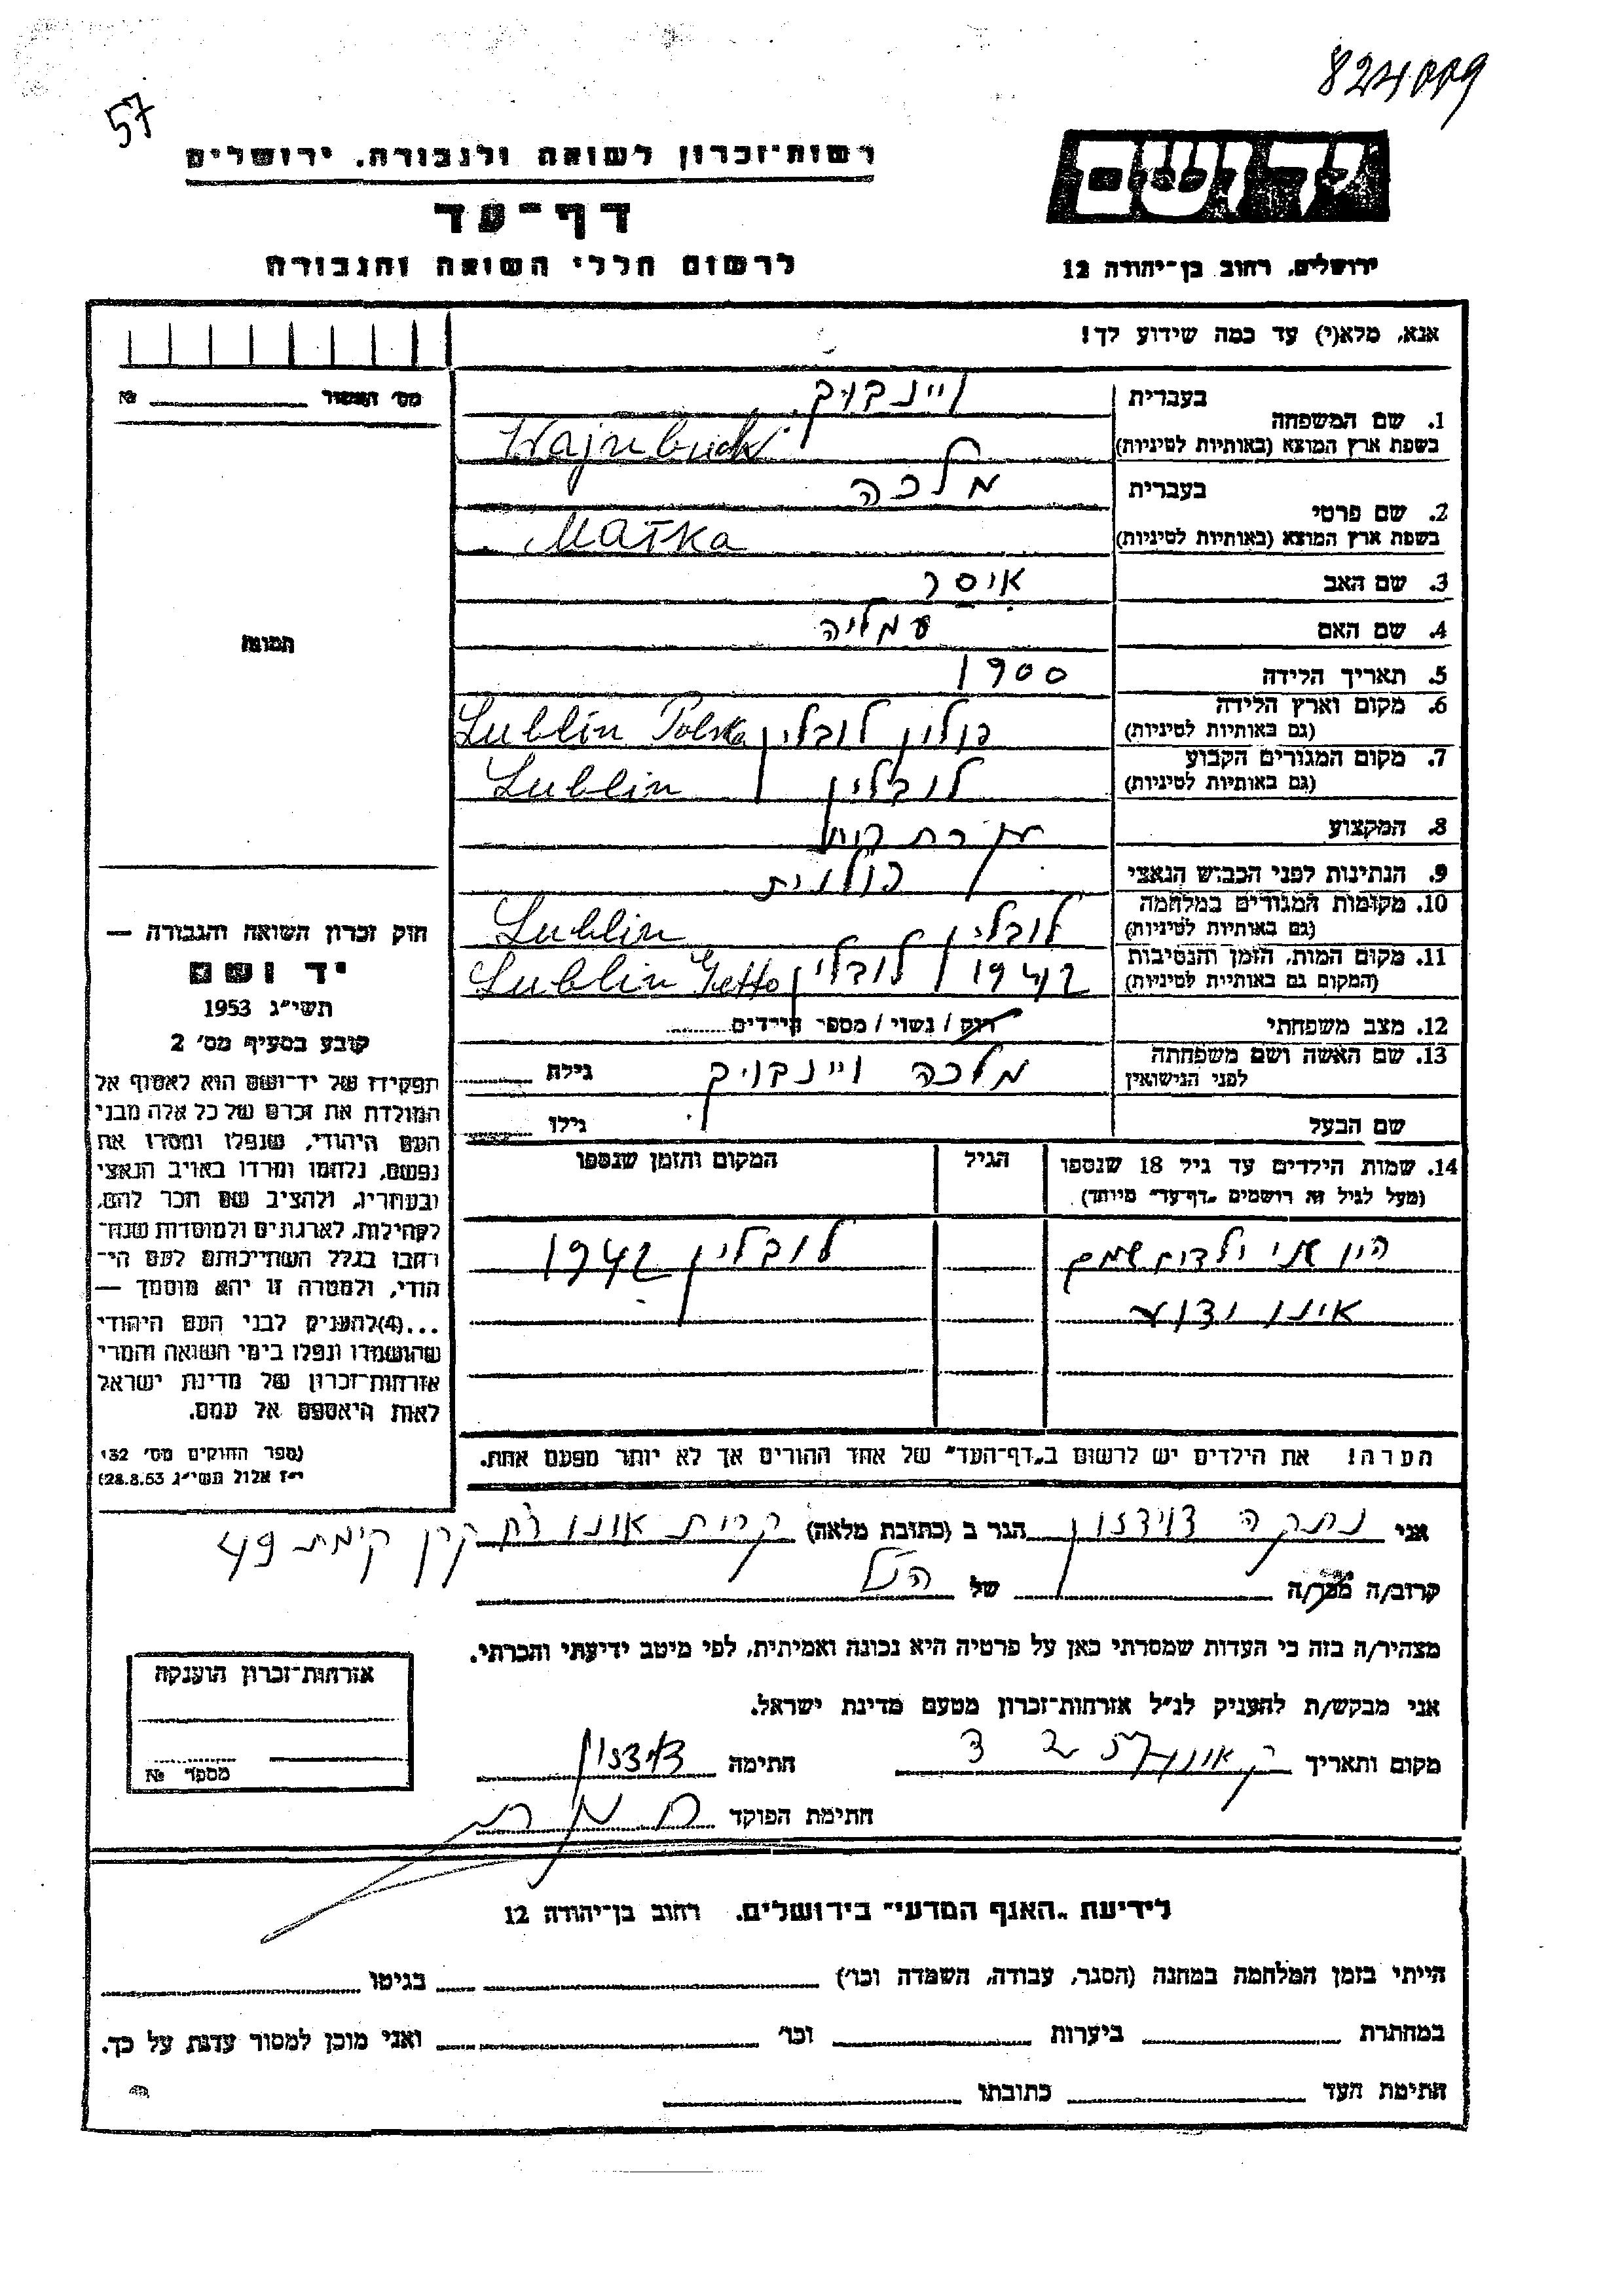 824009
57
יד ושם
רשות-זכרון לשואה ולגבורה. ירושלים
דף-עד
לרשום חללי השואה והגבורה
ירושלים. רחוב בן-יהודה 12
אנא, מלא(י) עד כמה שידוע לך!
מס' האשור № 
בעברית ויינבוק
1. שם המשפחה
בשפת ארץ המוצא (באותיות לטיניות) Wajnbuck
בעברית מלכה
2. שם פרטי
בשפת ארץ המוצא (באותיות לטיניות) Małka
3. שם האב איסר
4. שם האם עמליה
תמונה
5. תאריך הלידה 1900
6. מקום וארץ הלידה פולין לובלין Lublin Polska
(גם באותיות לטיניות)
7. מקום המגורים הקבוע לובלין Lublin
(גם באותיות לטיניות)
8. המקצוע עקרת בית
9. הנתינות לפני הכבוש הנאצי פולנית
10. מקומות המגורים במלחמה לובלין Lublin
(גם באותיות לטיניות)
11. מקום המות, הזמן והנסיבות 1942 לובלין Lublin Getto
(המקום גם באותיות לטיניות)
12. מצב משפחתי רווק / נשוי / מספר הילדים
13. שם האשה ושם משפחתה מלכה ויינבוק גילה
לפני הנישואין
שם הבעל גילו
14. שמות הילדים עד גיל 18 שנספו הגיל המקום והזמן שנספו
(מעל לגיל זה רושמים "דף-עד" מיוחד).
היו שני ילדים שמם לובלין 1942
אינו ידוע
הערה! את הילדים יש לרשום ב"דף-העד" של אחד ההורים אך לא יותר מפעם אחת.
חוק זכרון השואה והגבורה —
יד ושם
תשי"ג 1953
קובע בסעיף מס' 2
תפקידו של יד-ושם הוא לאסוף אל
המולדת את זכרם של כל אלה מבני
העם היהודי, שנפלו ומסרו את
נפשם, נלחמו ומרדו באויב הנאצי
ובעוזריו, ולהציב שם וזכר להם,
לקהילות, לארגונים ולמוסדות שנח-
רבו בגלל השתייכותם לעם הי-
הודי, ולמטרה זו יהא מוסמך —
...(4)להעניק לבני העם היהודי
שהושמדו ונפלו בימי השואה והמרי
אזרחות-זכרון של מדינת ישראל
לאות היאספם אל עמם.
(ספר החוקים מס' 132
י"ז אלול תשי"ג 28.8.53)
אני נתקה דוידזון הגר ב (כתובת מלאה) קרית אונו רח קרן קימת 49
קרוב/ה מכר/ה של הנ"ל
מצהיר/ה בזה כי העדות שמסרתי כאן על פרטיה היא נכונה ואמיתית, לפי מיטב ידיעתי והכרתי.
אני מבקש/ת להעניק לנ"ל אזרחות-זכרון מטעם מדינת ישראל.
מקום ותאריך חתימה דוידזון
חתימת הפוקד
אזרחות-זכרון הוענקה
מספר №
לידיעת "האגף המדעי" בירושלים. רחוב בן-יהודה 12
הייתי בזמן המלחמה במחנה (הסגר, עבודה, השמדה וכו') בגיטו
במחתרת ביערות וכו' ואני מוכן למסור עדות על כך.
חתימת העד כתובתו